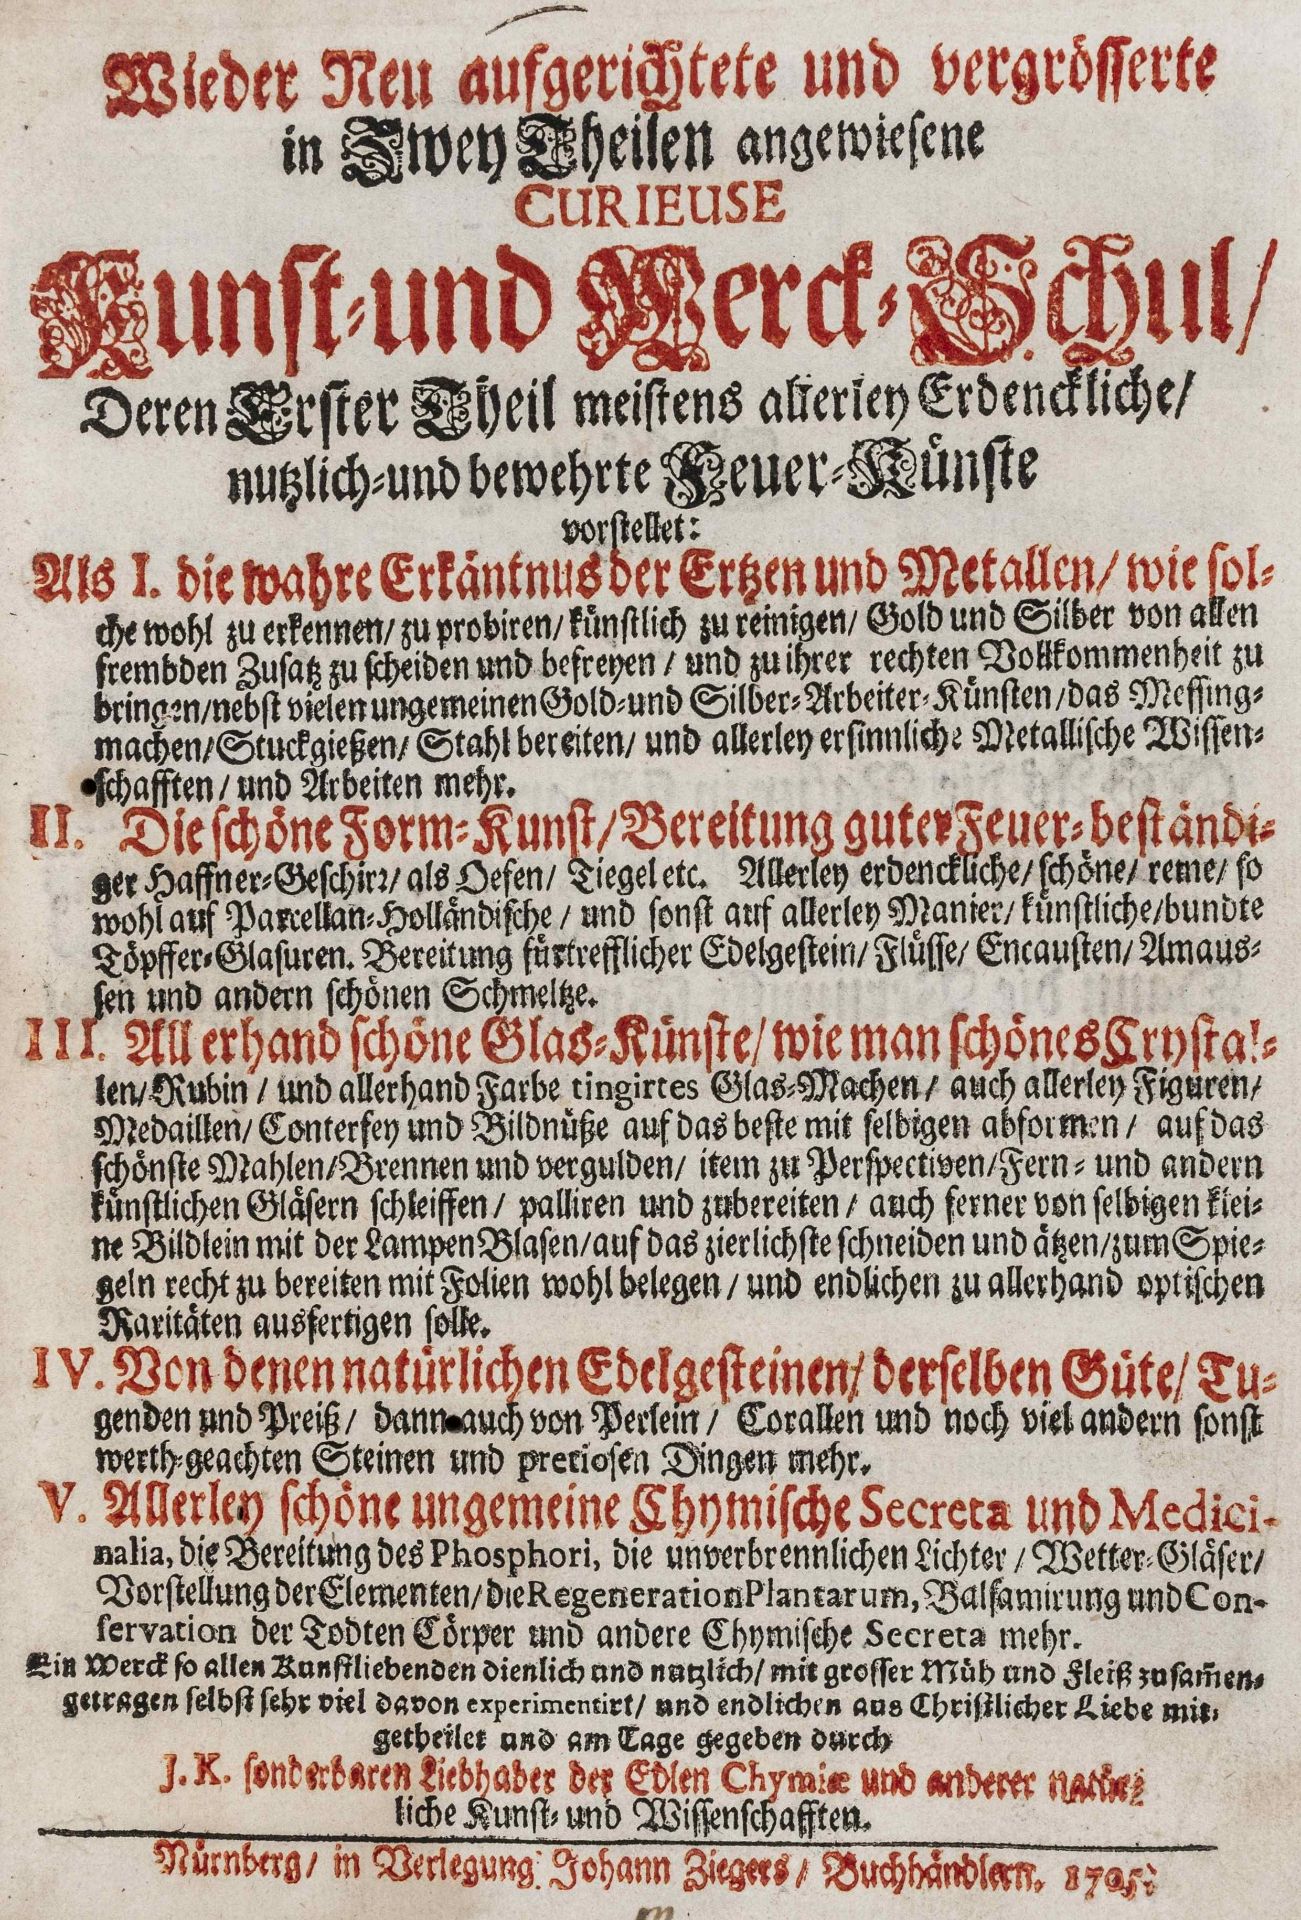 Wieder Neu aufgerichtete und vergrösserte
in Zwey Theilen angewiesene
CURIEUSE
Kunst-und Werck-Schul/
Deren Erster Theil meistens allerley Erdenckliche/
nutzlich-und bewehrte Feuer-Künste
vorstellet:
Als I. die wahre Erkäntnus der Ertzen und Metallen/ wie sol-
che wohl zu erkennen/ zu probiren/ künstlich zu reinigen/ Gold und Silber von allen
frembden Zusatz zu scheiden und befreyen/ und zu ihrer rechten Vollkommenheit zu
bringen/ nebst vielen ungemeinen Gold-und Silber-Arbeiter-Künsten/ das Messing-
machen/ Stuckgießen/ Stahl bereiten/ und allerley ersinnliche Metallische Wissen-
schafften/ und Arbeiten mehr.
II. Die schöne Form-Kunst/ Bereitung guter Feuer-beständi-
ger Haffner-Geschirr/ als Oefen/ Tiegel etc. Allerley erdenckliche/ schöne/ reine/ so
wohl auf Parcellan-Holländische/ und sonst auf allerley Manier/ künstliche/ bundte
Töpffer-Glasuren. Bereitung fürtrefflicher Edelgestein/ Flüsse/ Encausten/ Amaus-
sen und andern schönen Schmeltze.
III. Allerhand schöne Glas-Künste/ wie man schönes Crystal-
len/ Rubin/ und allerhand Farbe tingirtes Glas-Machen/ auch allerley Figuren/
Medaillen/ Conterfey und Bildnüße auf das beste mit selbigen abformen/ auf das
schönste Mahlen/ Brennen und vergulden/ item zu Perspectiven/ Fern- und andern
künstlichen Gläsern schleiffen/ palliren und zubereiten/ auch ferner von selbigen klei-
ne Bildlein mit der Lampen Blasen/ auf das zierlichste schneiden und ätzen/ zum Spie-
geln recht zu bereiten mit Folien wohl belegen/ und endlichen zu allerhand optischen
Raritäten ausfertigen solle.
IV. Von denen natürlichen Edelgesteinen/ derselben Güte/ Tu-
genden und Preiß/ dann auch von Perlein/ Corallen und noch viel andern sonst
werth-geachten Steinen und pretiosen Dingen mehr.
V. Allerley schöne ungemeine Chymische Secreta und Medici-
nalia, die Bereitung des Phosphori, die unverbrennlichen Lichter/ Wetter-Gläser/
Vorstellung der Elementen/ die Regeneration Plantarum, Balsamirung und Con-
servation der Todten Cörper und andere Chymische Secreta mehr.
Ein Werck so allen Kunstliebenden dienlich und nutzlich/ mit grosser Müh und Fleiß zusam̃en-
getragen selbst sehr viel davon experimentirt/ und endlichen aus Christlicher Liebe mit-
getheilet und am Tage gegeben durch
J. K. sonderbaren Liebhaber der Edlen Chymiæ und anderer natür-
liche Kunst- und Wissenschafften.
Nürnberg/ in Verlegung Johann Ziegers/ Buchhändlern. 1705.